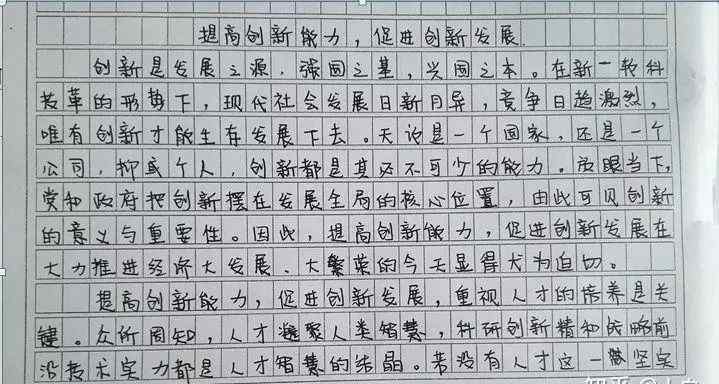 提高创新能力，促进创新发展
创新是发展之源，强国之基，兴国之本。在新一轮科
技革的形势下，现代社会发展日新月异，竞争日趋激烈，
唯有创新才能生存发展下去。无论是一个国家，还是一个
公司，抑或个人，创新都是其必不可少的能力。放眼当下，
党和政府把创新摆在发展全局的核心位置，由此可见创新
的意义与重要性。因此，提高创新能力，促进创新发展在
大力推进经济大发展、大繁荣的今天显得尤为迫切。
提高创新能力，促进创新发展，重视人才的培养是关
键。众所周知，人才凝聚人类智慧，科研创新精和战略前
沿技术实力都是人才智慧的结晶。若没有人才这一坚实